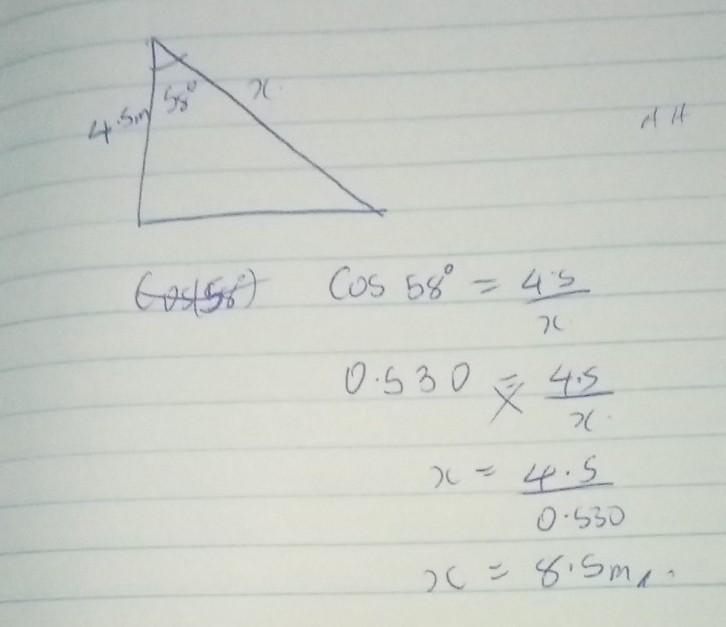 58°
x
4.5m
AH
Cos(58°) Cos 58° = 4.5
x
0.530 = 4.5
x
x = 4.5
0.530
x = 8.5m